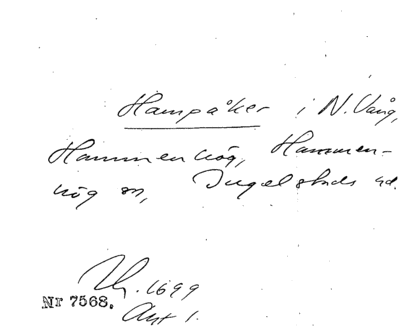 Hampåker i N. Vång,
Hammenhög, Hammen-
hög sn, Ingelstads hd.
1699
Nr 7568.
Akt 1.